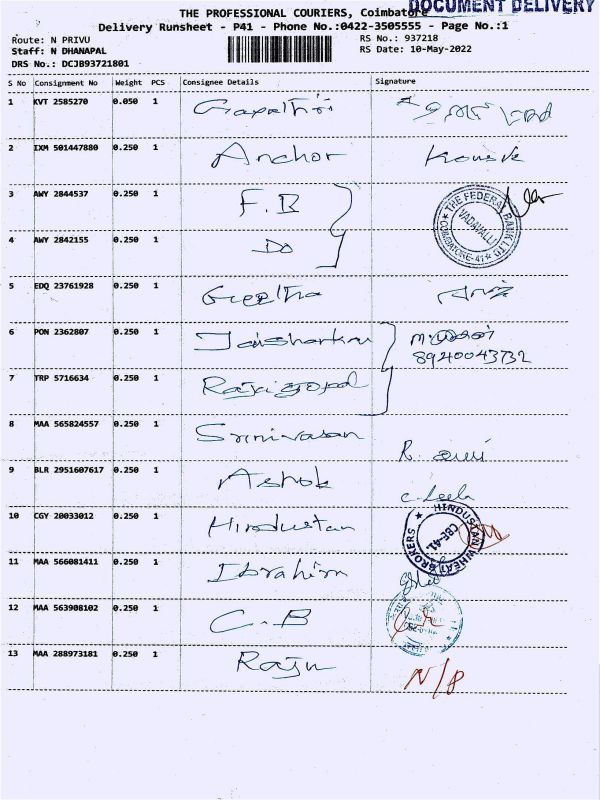 DOCUMENT DELIVERY
THE PROFESSIONAL COURIERS, Coimbatore
Delivery Runsheet - P41 - Phone No.:0422-3505555 - Page No.:1
Route: N PRIVU RS No.: 937218
Staff: N DHANAPAL RS Date: 10-May-2022
DRS No.: DCJB93721801
S No Consignment No Weight PCS Consignee Details Signature
1 KVT 2585270 0.050 1
2 IXM 501447880 0.250 1 Anchor
3 AWY 2844537 0.250 1 F.B
THE FEDERAL BANK LTD
VADAVALLI
COIMBATORE-41
4 AWY 2842155 0.250 1 DO
5 EDQ 23761928 0.250 1 Geetha
6 PON 2362807 0.250 1
8940043732
7 TRP 5716634 0.250 1 Rajagopal
8 MAA 565824557 0.250 1 Srinivasan
9 BLR 2951607617 0.250 1 Ashok
C. Leela
10 CGY 20033012 0.250 1 Hindustan
HINDUSTAN WHEAT BROKERS
CBE-41
11 MAA 566081411 0.250 1 Ibrahim
12 MAA 563908102 0.250 1 C.B
13 MAA 288973181 0.250 1 Raju
N/B